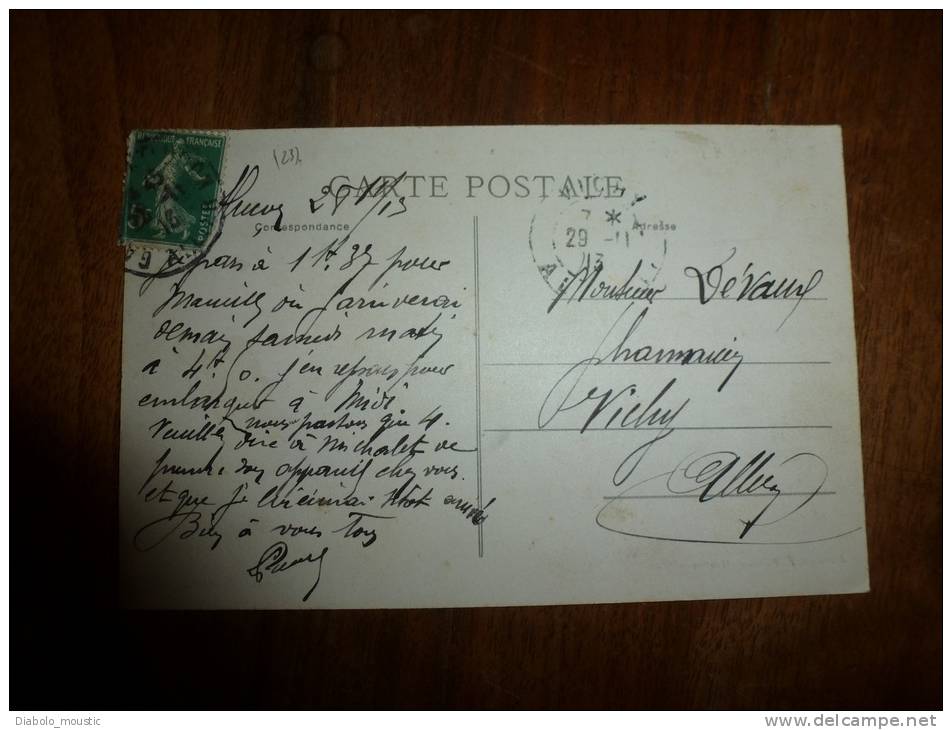 (23)
REPUBLIQUE FRANÇAISE
POSTES
CARTE POSTALE
29 11/13
Correspondance
Adresse
7 *
29 -11
13
Je pars à 1h.37 pour
Marseille où j'arriverai
demain samedi matin
à 4h.50. J'en repars pour
embarquer à Midi
nous partons qu'à 4.
Veuillez dire à Michalet de
prendre son appareil chez vous
et que je lui écrirai arrivé
Bien à vous Tous
Monsieur Dévaux
pharmacien
Vichy
Allier
Diabolo_moustic
www.delcampe.net